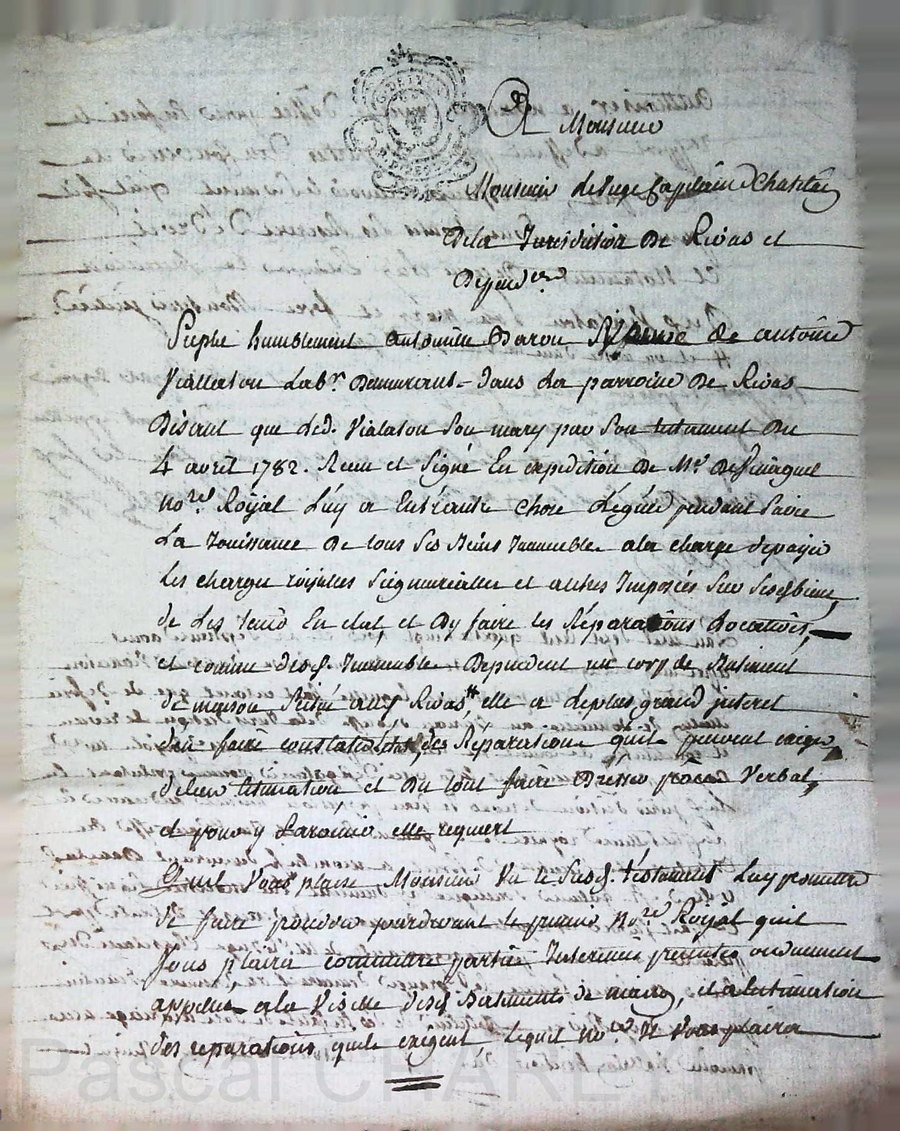 A
Monsieur
Monsieur le Juge Capitaine Chatelain
De la Jurisdiction De Rivas et
Dependces
Suplie humblement antoinette Barou Veuve de antoine
Viallaton Labr. Demeurant dans La parroisse De Rivas
Disant que led. Vialaton Son mary par Son testament Du
4 avril 1782. Recu et Signé En expedition De Me.
nore. Royal Luy a Entr'autre chose Légué pendant Savie
La Jouissance De tous Ses Biens Immeubles ala charge depayer
Les charges royalles Seigneurialles et autres Imposées Sur Sesdbiens,
de Les tenir En etat, et Dy faire Les Réparations Locatives,
et comme desd. Immeubles Dependent un corp de Batiment
De maison Situé aud Rivas, elle a Leplus grand interet
den faire constater des Réparations quils peuvent exiger
deleur Estimation et Du tout faire Dresser procès Verbal,
et pour y Parvenir elle requiert
Quil Vous plaise Monsieur Vu le Susd. téstament Luy permettre
De faire proceder pardevant le premier nore Royal quil
Vous plaira commettre parties Interessées presentes ou duement
appellées ala Visitte desd Batiments de maison, et alestimation
des reparations quils exigent Lequel nore Il Vous plaira
Pascal CHARLET